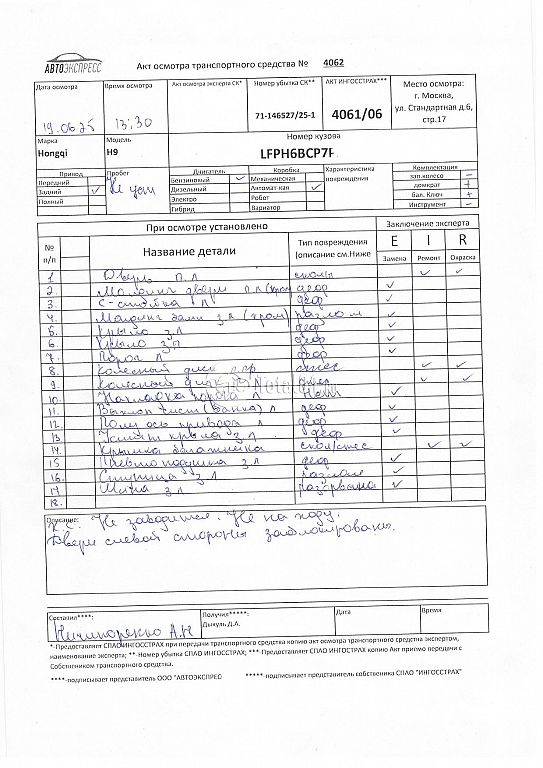 АВТОЭКСПРЕСС
Акт осмотра транспортного средства № 4062
Дата осмотра
Время осмотра
Акт осмотра эксперта СК*
Номер убытка СК**
АКТ ИНГОССТРАХ***
Место осмотра:
г. Москва,
ул. Стандартная д.6,
стр.17
19.06.25
13:30
71-146527/25-1
4061/06
Марка
Модель
Номер кузова
Hongqi
H9
LFPH6BCP7F
Привод
Пробег
Двигатель
Коробка
Характеристика повреждения
Комплектация
Передний
Бензиновый ✓
Механическая
зап.колесо –
Задний ✓
Дизельный
Автомат-кая ✓
домкрат +
Полный
Электро
Робот
бал. Ключ +
Гибрид
Вариатор
Инструмент –
При осмотре установлено
Заключение эксперта
№ п/п
Название детали
Тип повреждения (описание см.Ниже
E
I
R
Замена
Ремонт
Окраска
1 Дверь п.л сколы ✓ ✓
2 Молдинг двери п.л (хром) деф ✓
3. С-стойка л деф ✓
4. Молдинг з.л (хром) разлом ✓
5. Крыло з.л деф ✓
6. Крыло з.п деф ✓
7. Порог л деф ✓
8. Колесный диск ✓ ✓
9. Колесный диск ✓ ✓
10. Накладка порога л ✓
11. (банка) л деф ✓
12. Полуось привода л деф ✓
13 крыла з.л деф ✓
14. Крышка багажника скол/снес ✓ ✓
15 Пневмоподушка з.л деф ✓
16. Ступица з.л разлом ✓
17 Шина з.л разорвана ✓
18.
Описание:
Не заводится. Не на ходу.
Двери левой стороны заблокированы.
Составил****:
Получил*****:
Дата
Время
Ничипоренко А.Н
Дыкуль Д.А.
*-Предоставляет СПАО ИНГОССТРАХ при передачи транспортного средства копию акт осмотра транспортного средства экспертом,
наименование эксперта; **-Номер убытка СПАО ИНГОССТРАХ; ***-Предоставляет СПАО ИНГОССТРАХ копию Акт приемо передачи с
Собственником транспортного средства.
****-подписывает представитель ООО "АВТОЭКСПРЕС
*****-подписывает представитель собственика СПАО "ИНГОССТРАХ"